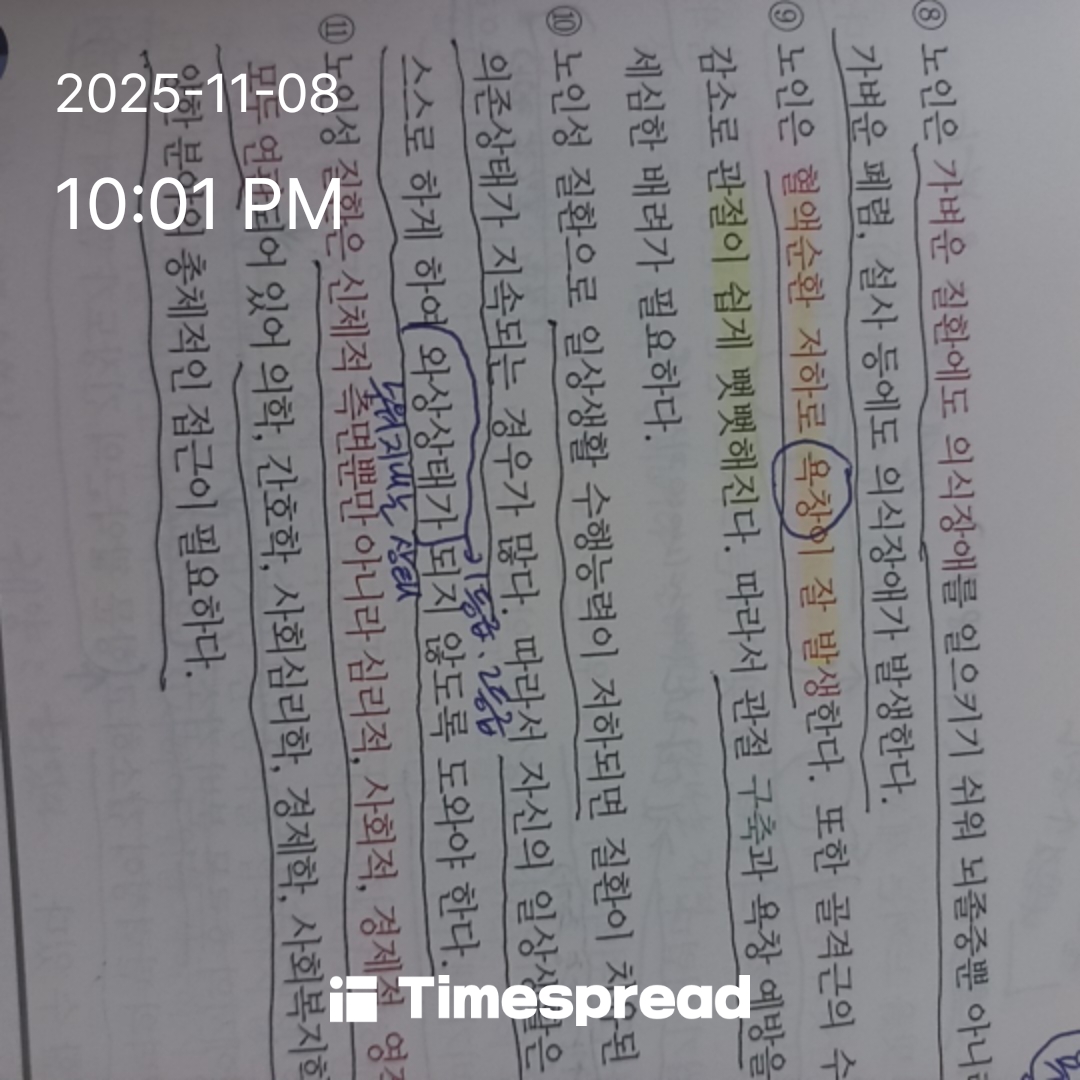 2025-11-08
10:01 PM
⑧ 노인은 가벼운 질환에도 의식장애를 일으키기 쉬워 뇌졸중뿐 아니
가벼운 폐렴, 설사 등에도 의식장애가 발생한다.
⑨ 노인은 혈액순환 저하로 욕창이 잘 발생한다. 또한 골격근의 수
감소로 관절이 쉽게 뻣뻣해진다. 따라서 관절 구축과 욕창 예방을
세심한 배려가 필요하다.
⑩ 노인성 질환으로 일상생활 수행능력이 저하되면 질환이 치유된
의존상태가 지속되는 경우가 많다. 따라서 자신의 일상생활은
1등급. 2등급
스스로 하게 하여 와상상태가 되지 않도록 도와야 한다.
누워지내는 상태
⑪ 노인성 질환은 신체적 측면뿐만 아니라 심리적, 사회적, 경제적
모두 연 되어 있어 의학, 간호학, 사회심리학, 경제학, 사회복지학
분야의 총체적인 접근이 필요하다.
Timespread